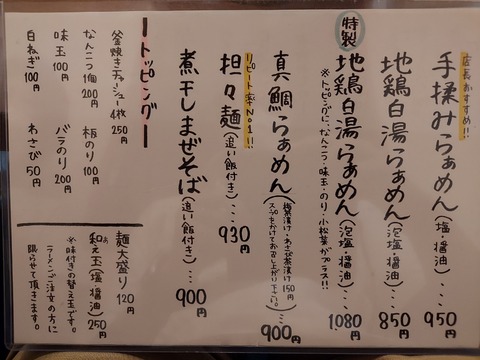 店長おすすめ!!
手揉みらぁめん(塩・醤油)… 950円
地鶏白湯らぁめん(泡塩・醤油)… 850円
特製
地鶏白湯らぁめん(泡塩・醤油)… 1080円
※トッピングに、なんこつ・味玉・のり・小松菜がプラス!!
真鯛らぁめん
(梅茶漬け・わさび茶漬け150円
スープをかけてお召し上がり下さい。)… 900円
リピート率No1!!
担々麺(追い飯付き)… 930円
煮干しまぜそば(追い飯付き)… 900円
トッピング
釜焼きチャーシュー4枚 250円
なんこつ1個 200円
板のり 100円
味玉 100円
バラのり 200円
白ねぎ 100円
わさび 50円
麺大盛り 120円
和え玉(塩・醤油) 250円
※味付きの替え玉です。
ラーメンご注文の方に
限らせて頂きます。